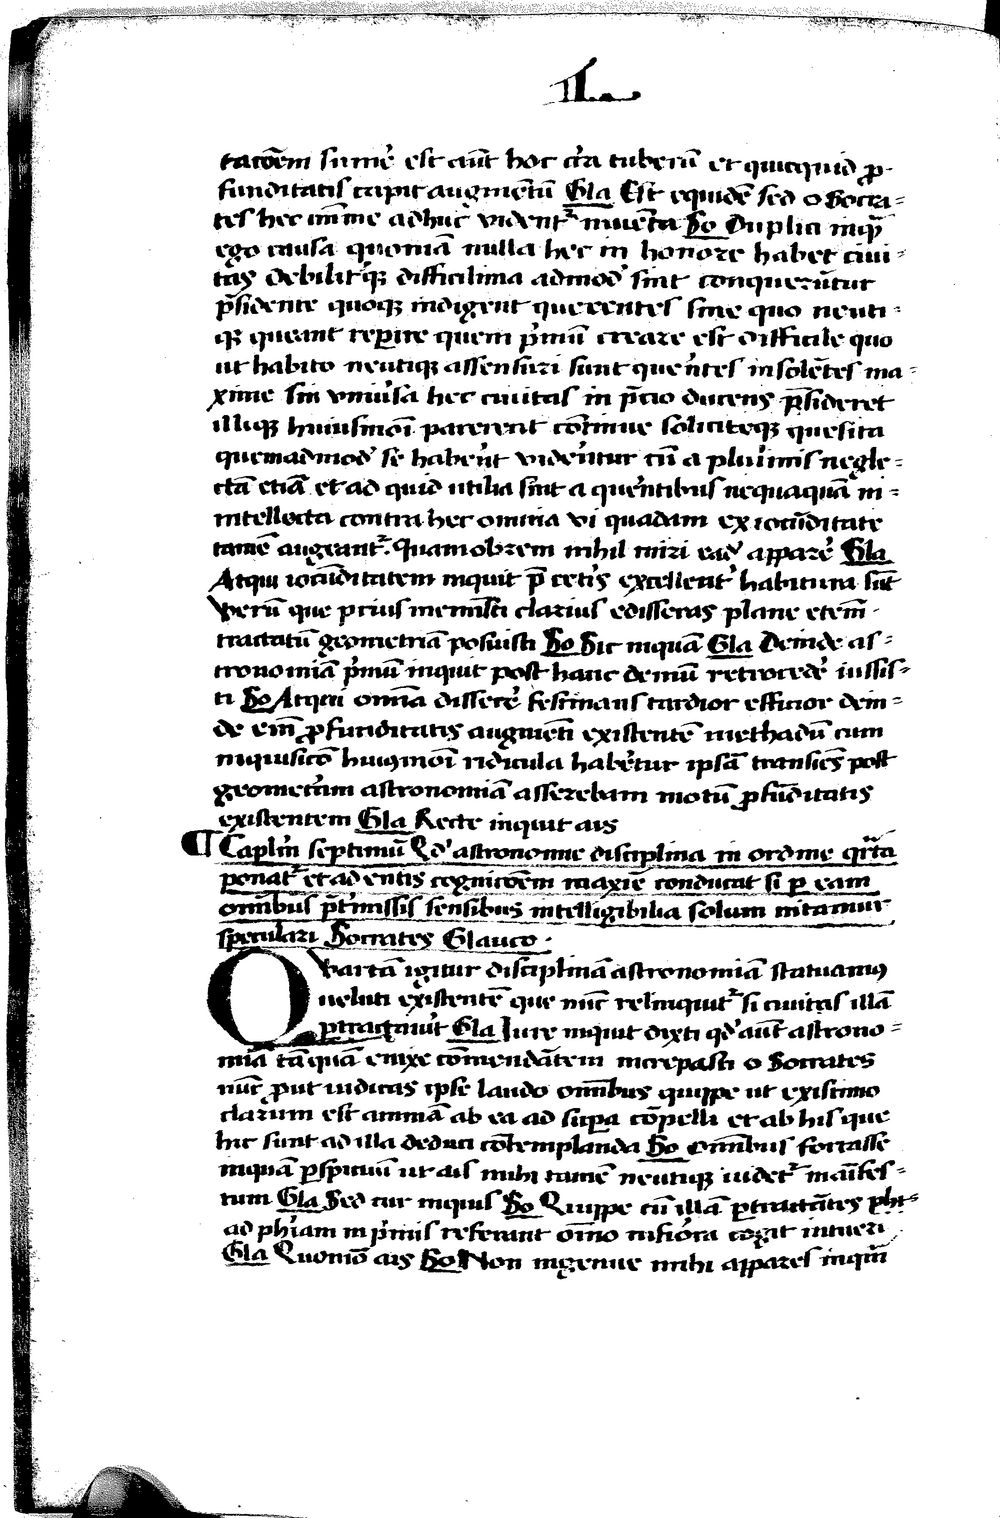 II.
tacōem sumē est aūt hoc ct̄a cuberū et quicquid ꝓ-
funditatis capit augmētū Gla Est equidē sed o Socra=
tes hec mīme adhuc videntᷣ inuēta So Duplici inqͣ
ego causa quoniā nulla hec in honore habet ciui=
tas debilitꝰqꝫ difficilima admodꝰ sint conquerūtur
p̄sidente quoqꝫ indigent querentes sine quo neuti=
qꝫ queant reꝑire quem p̄mū creare est difficile quo
ut habito neutiqꝫ assensuri sunt querētes insolētes ma=
xime sin vniuˀsa hec ciuitas in p̄cio ducens p̄sideret
illiqꝫ huiusmōi parerent cōtinue soliciteqꝫ quesita
quemadmodˀ se habeˀnt videˀntur cū a pluˀimis negle=
cta etiā et ad quid utilia sint a queˀntibus nequaquā in=
intellecta contra hec omnia vi quadam ex iocūditate
tamē augeantᷣ. Quamobrem nihil miri eadˀ apparē Gla
Atqui iocūditatem inquit p̄ ceteˀis excellentˀ habitura sūt
Verū que prius meministi clarius edisseras plane etem̄
tractatū geometriā posuisti So Sic inquā Gla Deinde as=
tronomiā p̄mū inquit post hanc demū retrocedeˀ iussis=
ti So Atqui omīa disserēˀ festinans tardior efficior dein=
de em̄ ꝓfunditatis augmēti existentē methadū cum
inquisicō huiꝰmōi ridicula habeˀtur ipsā transiēs post
geometˀam astronomiā asserebam motū ꝓfūditatis
existentem Gla Recte inquit ais
¶ Caplˀm septimū Qdˀ astronomie disciplina in ordine qrˀta
ponatᷣ et ad entis cognicōem maxīe conducat si ꝑ eam
omībus p̄tˀmissis sensibus intelligibilia solum nitamur
speculari Socrates Glauco.
Quartā igitur disciplinā astronomiā statuamꝰ
ueluti existentē que nūc relinquitᷣ si ciuitas illā
ꝑtractauˀit Gla Iure inquit dixti qdˀ aūt astrono=
miā tāquā enixe cōmendātem increpasti o Socrates
nūc ꝓut iudicas ipse laudo omībus quippe ut existimo
clarum est animā ab ea ad suꝑa cōpelli et ab his que
hic sunt ad illa deduci cōtemplanda So Omībus fortasse
inquā ꝑspicuū ut ais mihi tamē neutiqꝫ uidetᷣ maīfes=
tum Gla Sed cur inquis So Quippe cū illā ꝑtractātes phi=
ad phˀiam in p̄mis referunt oīno infiˀora cogat intueri
Gla Quomō ais So Non ingenue mihi appares inquit